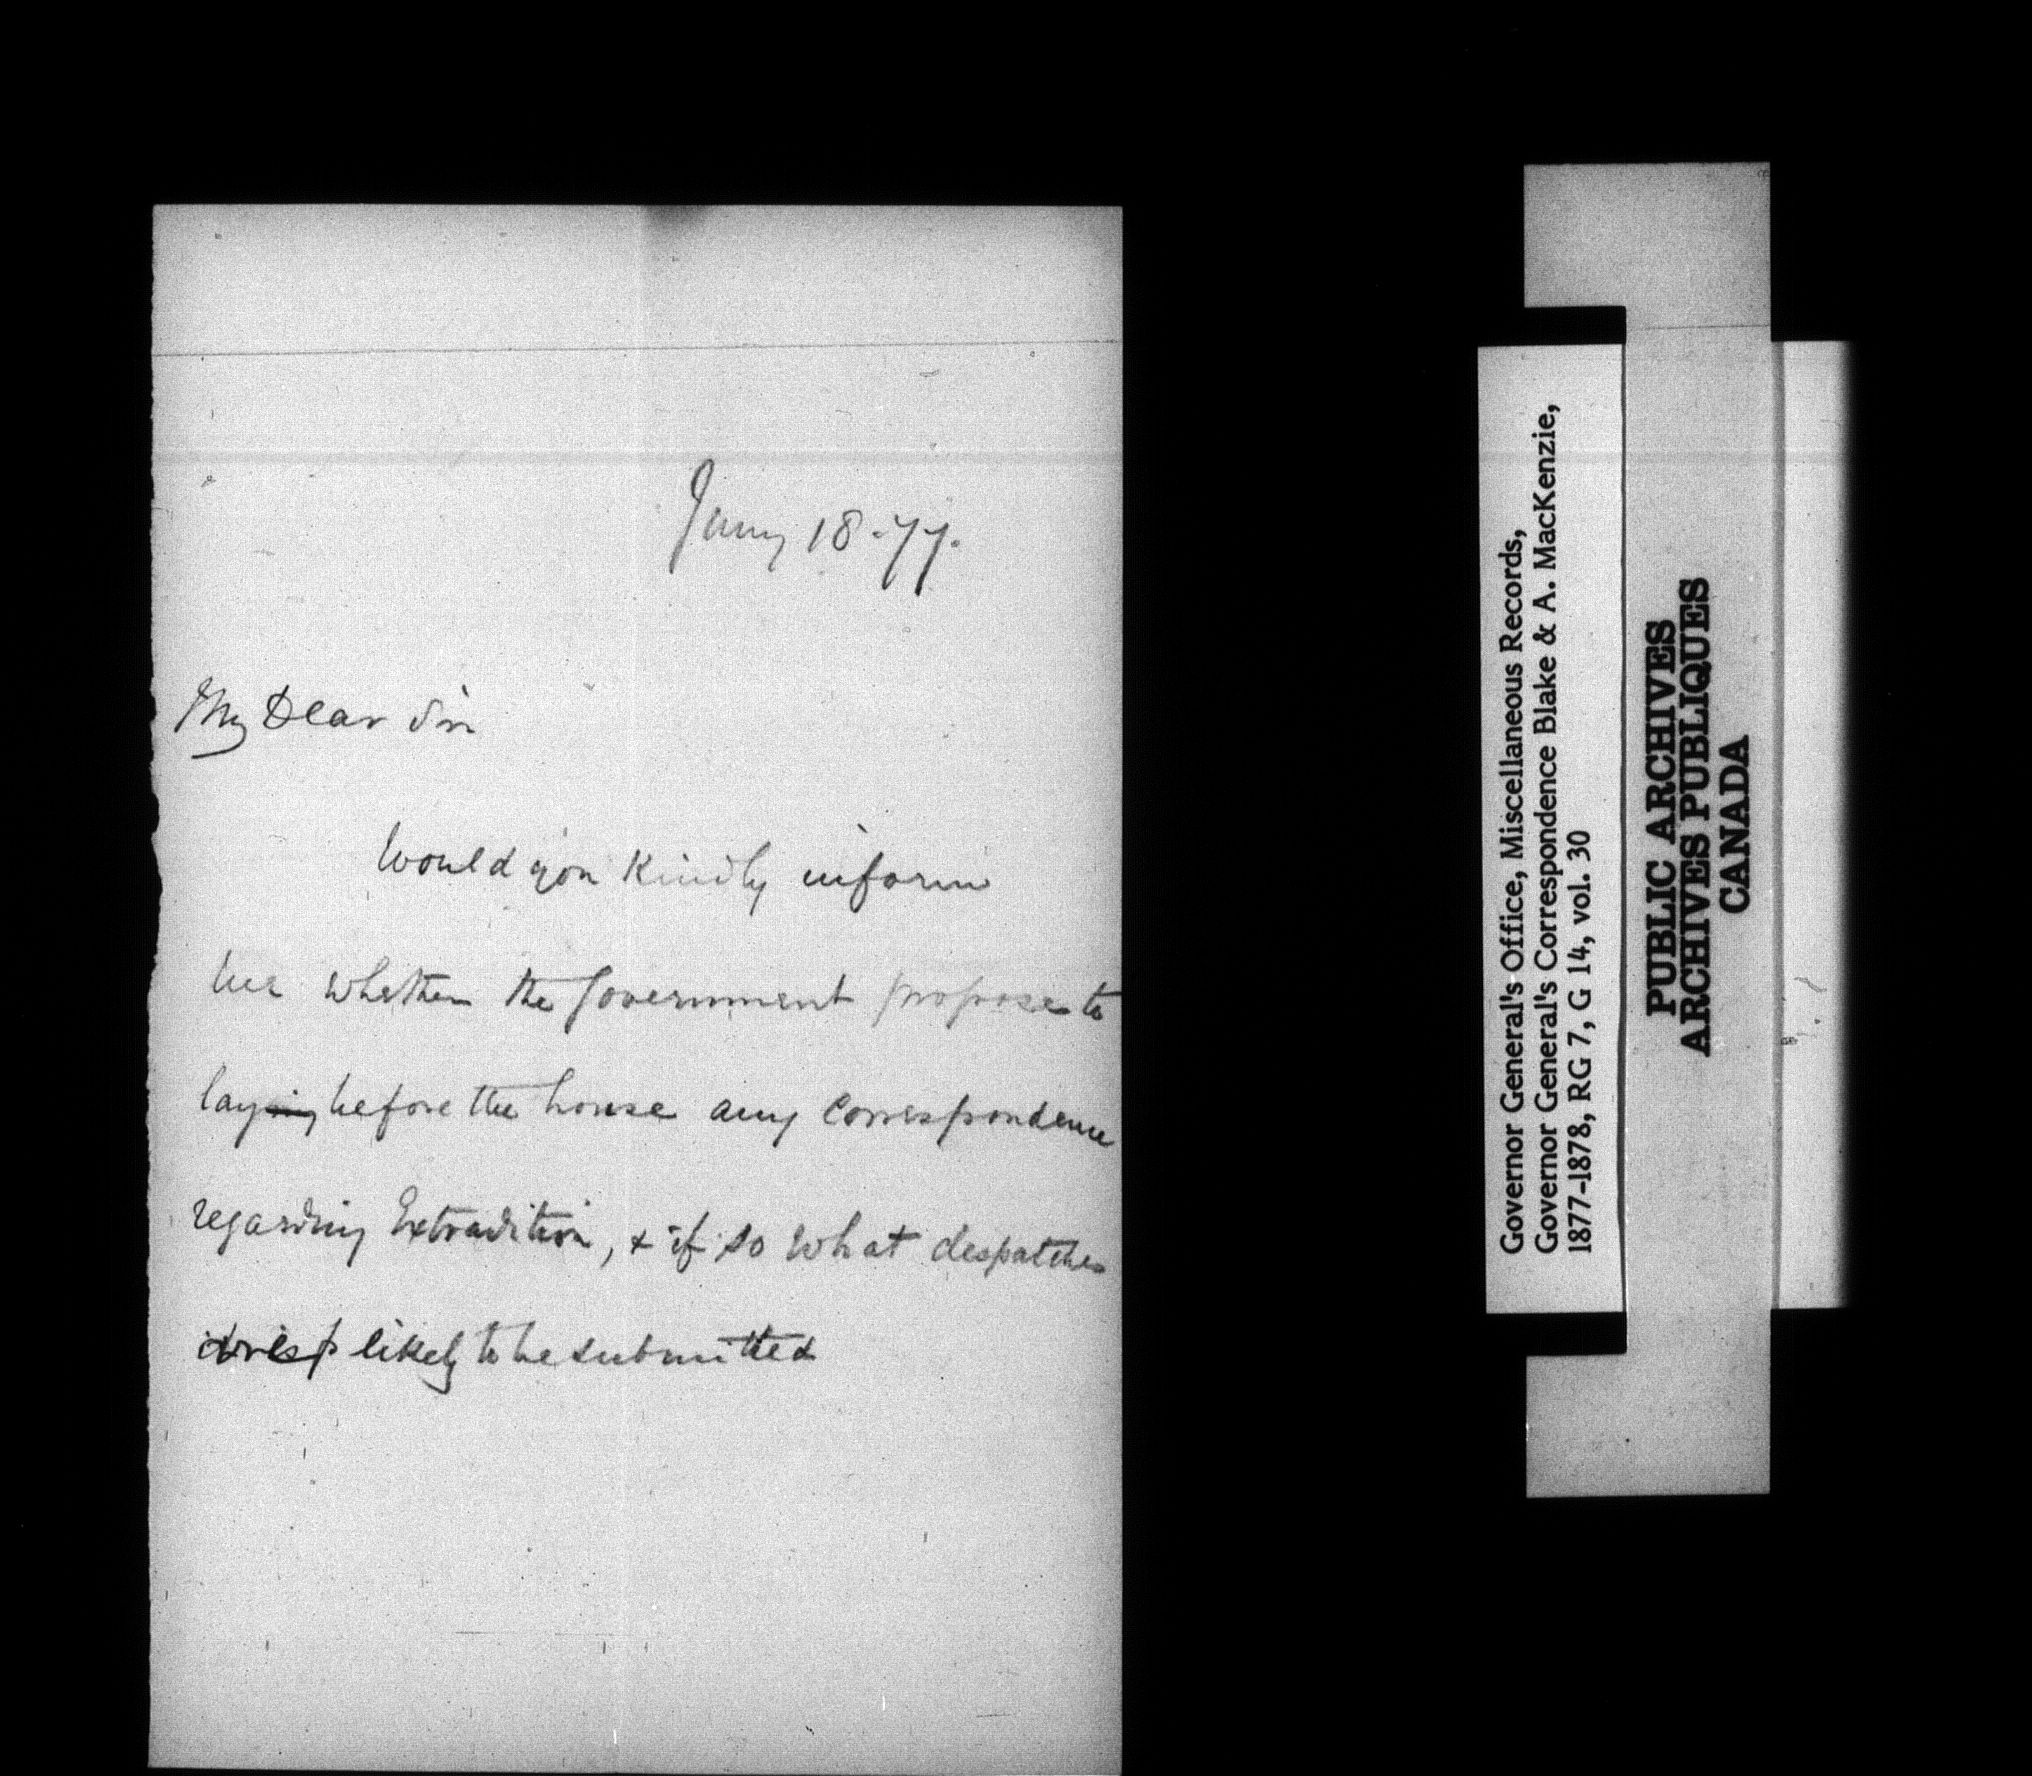 Jany 18-77.
My Dear Sir
Would you kindly inform
me whether the Government propose to
lay before the house any correspondence
regarding Extradition, & if so what despatches
likely to be submitted
Governor General's Office, Miscellaneous Records,
Governor General's Correspondence Blake & A. MacKenzie,
1877-1878, RG 7, G 14, vol. 30
PUBLIC ARCHIVES
ARCHIVES PUBLIQUES
CANADA